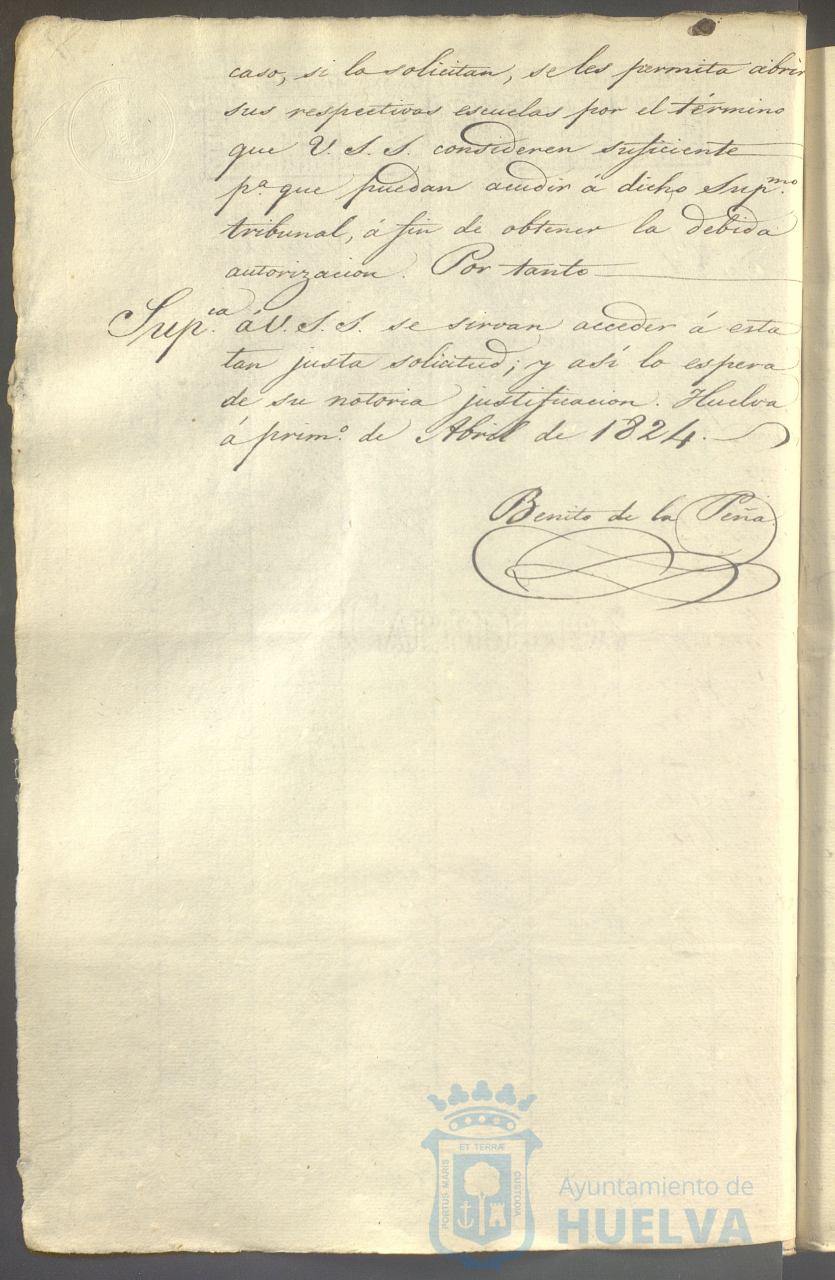 caso, si lo solicitan, se les permita abrir
sus respectivas escuelas por el término
que V. S. S. consideren suficiente
pª que puedan acudir á dicho Sup.mo
tribunal, á fin de obtener la debida
autorizacion. Por tanto
Sup.ca á V. S. S. se sirvan acceder á esta
tan justa solicitud; y asi lo espera
de su notoria justificacion. Huelva
á prim.º de Abril de 1824.
Benito de la Peña
ET TERRÆ
PORTUS MARIS
CUSTODIA
Ayuntamiento de
HUELVA